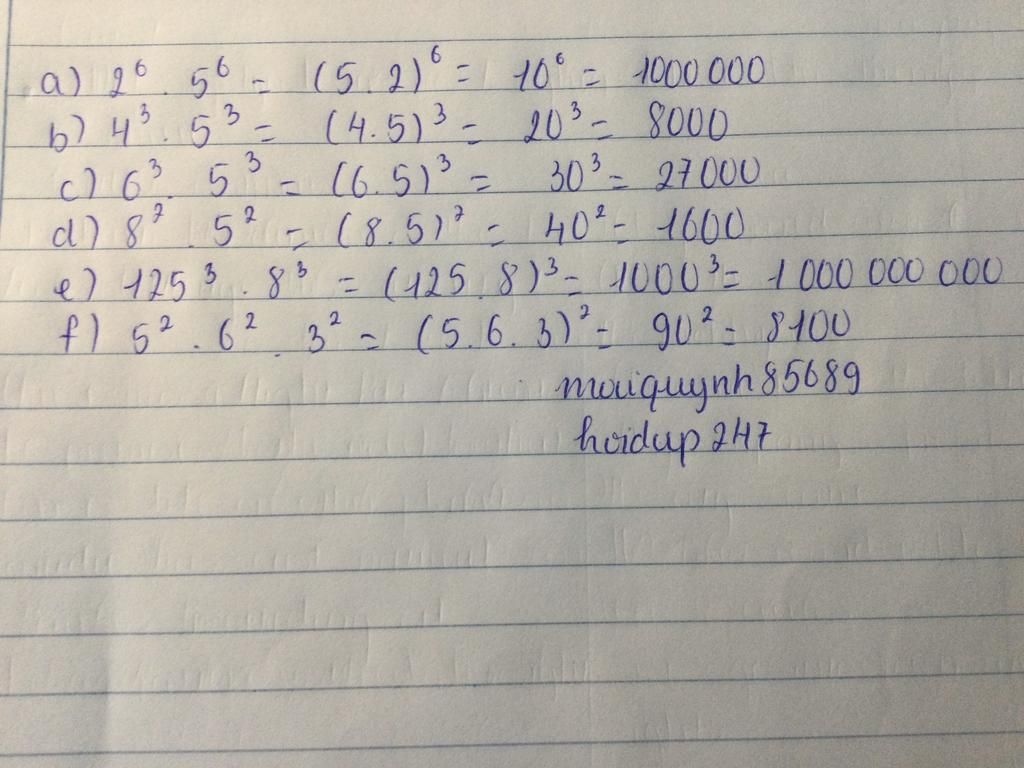 a) 2⁶ . 5⁶ = (5 . 2)⁶ = 10⁶ = 1000 000
b) 4³ . 5³ = (4.5)³ = 20³ = 8000
c) 6³ . 5³ = (6.5)³ = 30³ = 27000
d) 8² . 5² = (8.5)² = 40² = 1600
e) 125³ . 8³ = (125 . 8)³ = 1000³ = 1 000 000 000
f) 5² . 6² . 3² = (5.6.3)² = 90² = 8100
maiquynh85689
hoidap247